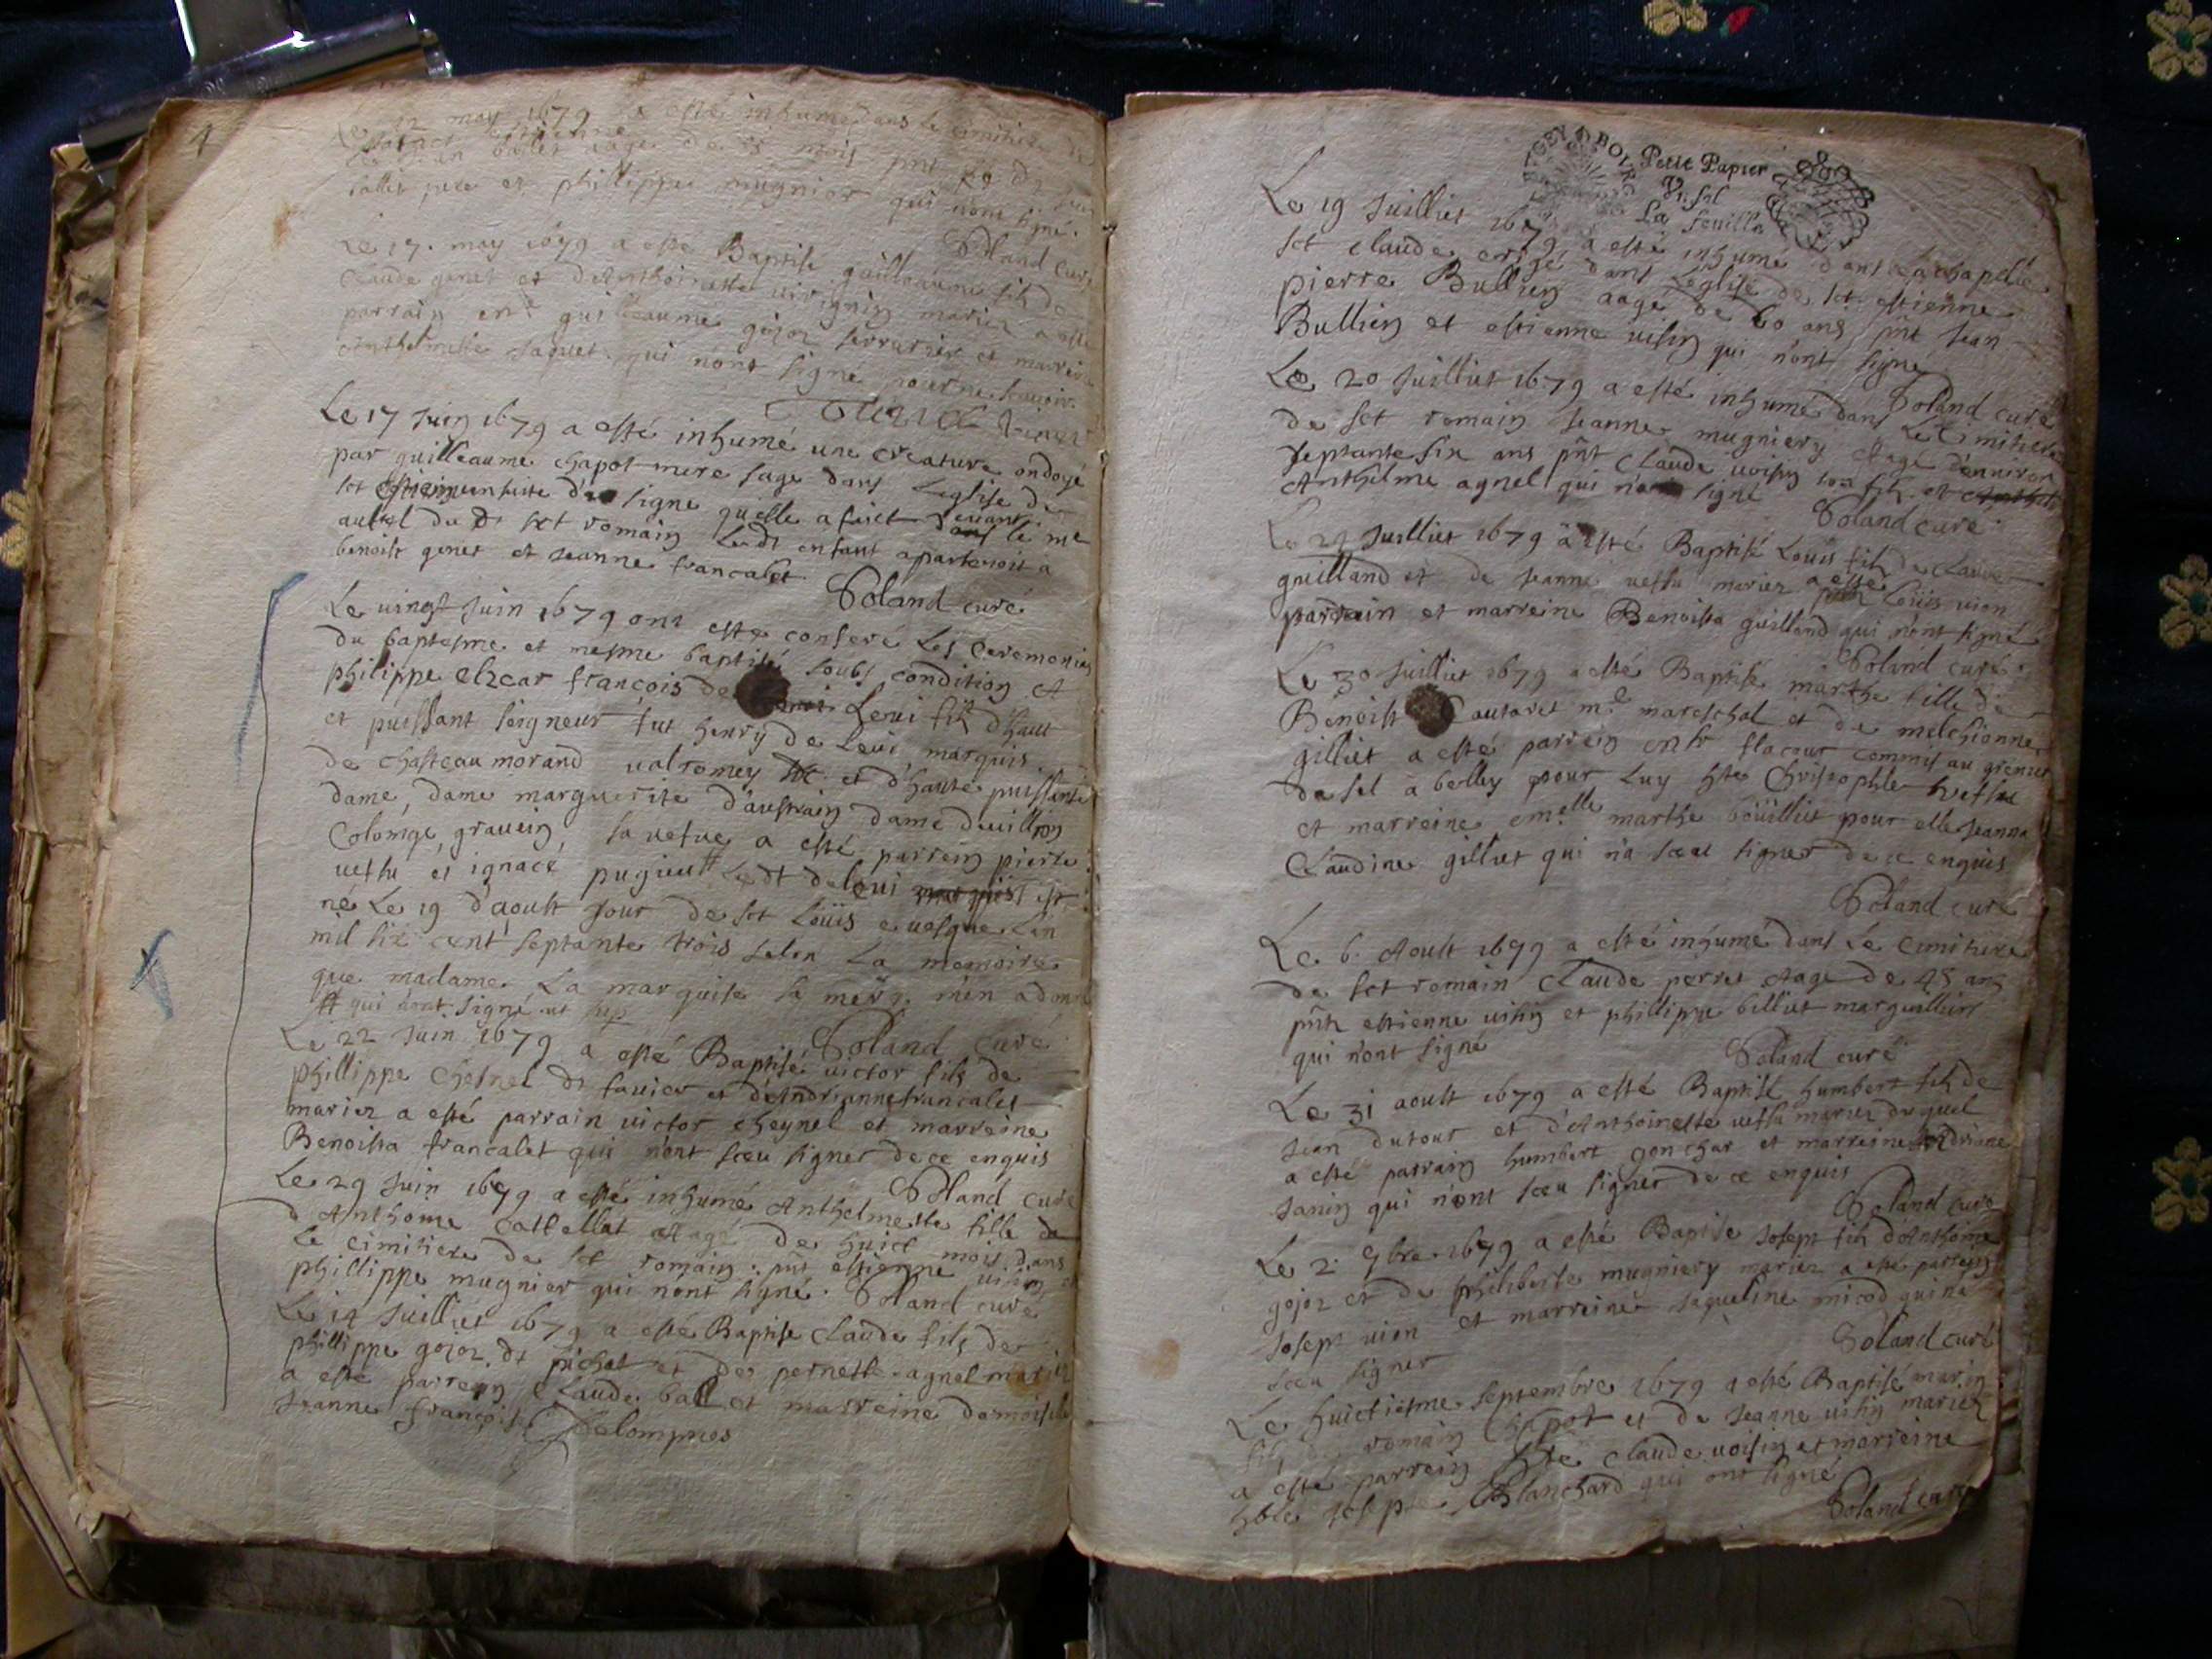 Le 12 may 1679 a esté inhumé dans le cimitiere de
aagé de 15 mois pnt
pere et phillippe mugnier qui n'ont signé.
Soland curé
Le 17. may 1679 a esté Baptisé guilleaume fils de
Claude genet et d'Anthoinette mariez a esté
parrain guilleaume gojoz serrurier et marreine
Anthelmette Jaquet. qui n'ont signé pour ne scavoir.
Le 17 Juin 1679 a esté inhumé une creature ondoyé
par guilleaume chapot mere sage dans L'eglise de
sct Estienne ensuite d'un signe qu'elle a faict devant le me
autel du dt sct romain Ledt enfant apartenoit a
benoist genet et Jeanne francalet
Soland curé
Le vingt Juin 1679 ont esté conferé Les Ceremonies
du baptesme et mesme baptisé soubs condition A
philippe elzear françois de Leui fils d'haut
et puissant seigneur fut henry de Leui marquis
de chasteau morand valromey &c. et d'haute puissante
dame, dame marguerite d'austrain dame d'uillion
Colonge, grauein, sa vefue a esté parrein pierre
vettu et ignace pugieu # Ledt de Leui marquis est
né Le 19 d'aoust Jour de sct Loüis euesque L'an
mil six cent septante trois selon La memoire
que madame La marquise sa mere m'en a donné
# qui n'ont signé ut sup
Soland curé
Le 22 Juin 1679 a esté Baptisé victor fils de
phillippe Cheynel dt favier et d'Andrianne francalet
mariez a esté parrain victor Cheynel et marreine
Benoista francalet qui n'ont sceu signer de ce enquis
Soland curé
Le 29 Juin 1679 a esté inhumé Anthelmette fille
d'Anthome Cattellat Aagé de huict mois dans
Le cimitiere de sct romain : pnt estienne visin et
phillippe mugnier qui n'ont signé. Soland curé
Le 14 Juilliet 1679 a esté Baptisé Claude fils de
phillippe gojoz dt pichat et de pernette agnel mariez
a esté parrein Claude ball et marreine damoiselle
Jeanne françoise Delompnes
Petit Papier
Vi. sol
La feuille
Le 19 Juilliet 1679 a esté inhumé dans La chapelle
sct Claude erigé dans L'eglise de sct estienne
pierre Bullien aagé de 60 ans pnt Jean
Bullien et estienne visin qui n'ont signé
Soland curé
Le 20 Juilliet 1679 a esté inhumé dans Le Cimitiere
de sct romain Jeanne mugniery Aagé d'environ
septante six ans pnt Claude voisin son fils et
Anthelme agnel qui n'ont signé
Soland curé
Le 29 Juilliet 1679 a esté Baptisé Loüis fils de Claude
guilland et de Jeanne vettu mariez a esté Loüis vion
parrain et marreine Benoista guilland qui n'ont signé
Soland curé
Le 30 Juilliet 1679 a esté Baptisé marthe fille de
Benoist Cautaret me mareschal et de melchionne
gilliet a esté parrein flacour commis au grenier
de sel a belley pour Luy hte Christophle vettu
et marreine marthe boüilliet pour elle Jeanna
Claudine gilliet qui n'a sceu signer de ce enquis
Soland curé
Le 6. Aoust 1679 a esté inhumé dans Le Cimitiere
de sct romain Claude perret Aagé de 45 ans
pnts estienne visin et phillippe billiet marguilliers
qui n'ont signé
Soland curé
Le 31 aoust 1679 a esté Baptisé humbert fils de
Jean dutour et d'Anthoinette vettu mariez duquel
a esté parrain humbert gonchar et marreine Andriane
Janin qui n'ont sceu signer de ce enquis
Soland curé
Le 2. 9bre 1679 a esté Baptisé Joseph fils d'Anthome
gojoz et de philiberte mugniery mariez a esté parrein
Joseph vion et marreine Jaqueline micod qui n'a
sceu signer
Soland curé
Le huictiesme septembre 1679 a esté Baptisé marin
fils de romain Chapot et de Jeanne visin mariez
a esté parrein hte Claude voisin et marreine
hble Joseph Blanchard qui ont signé
Soland curé